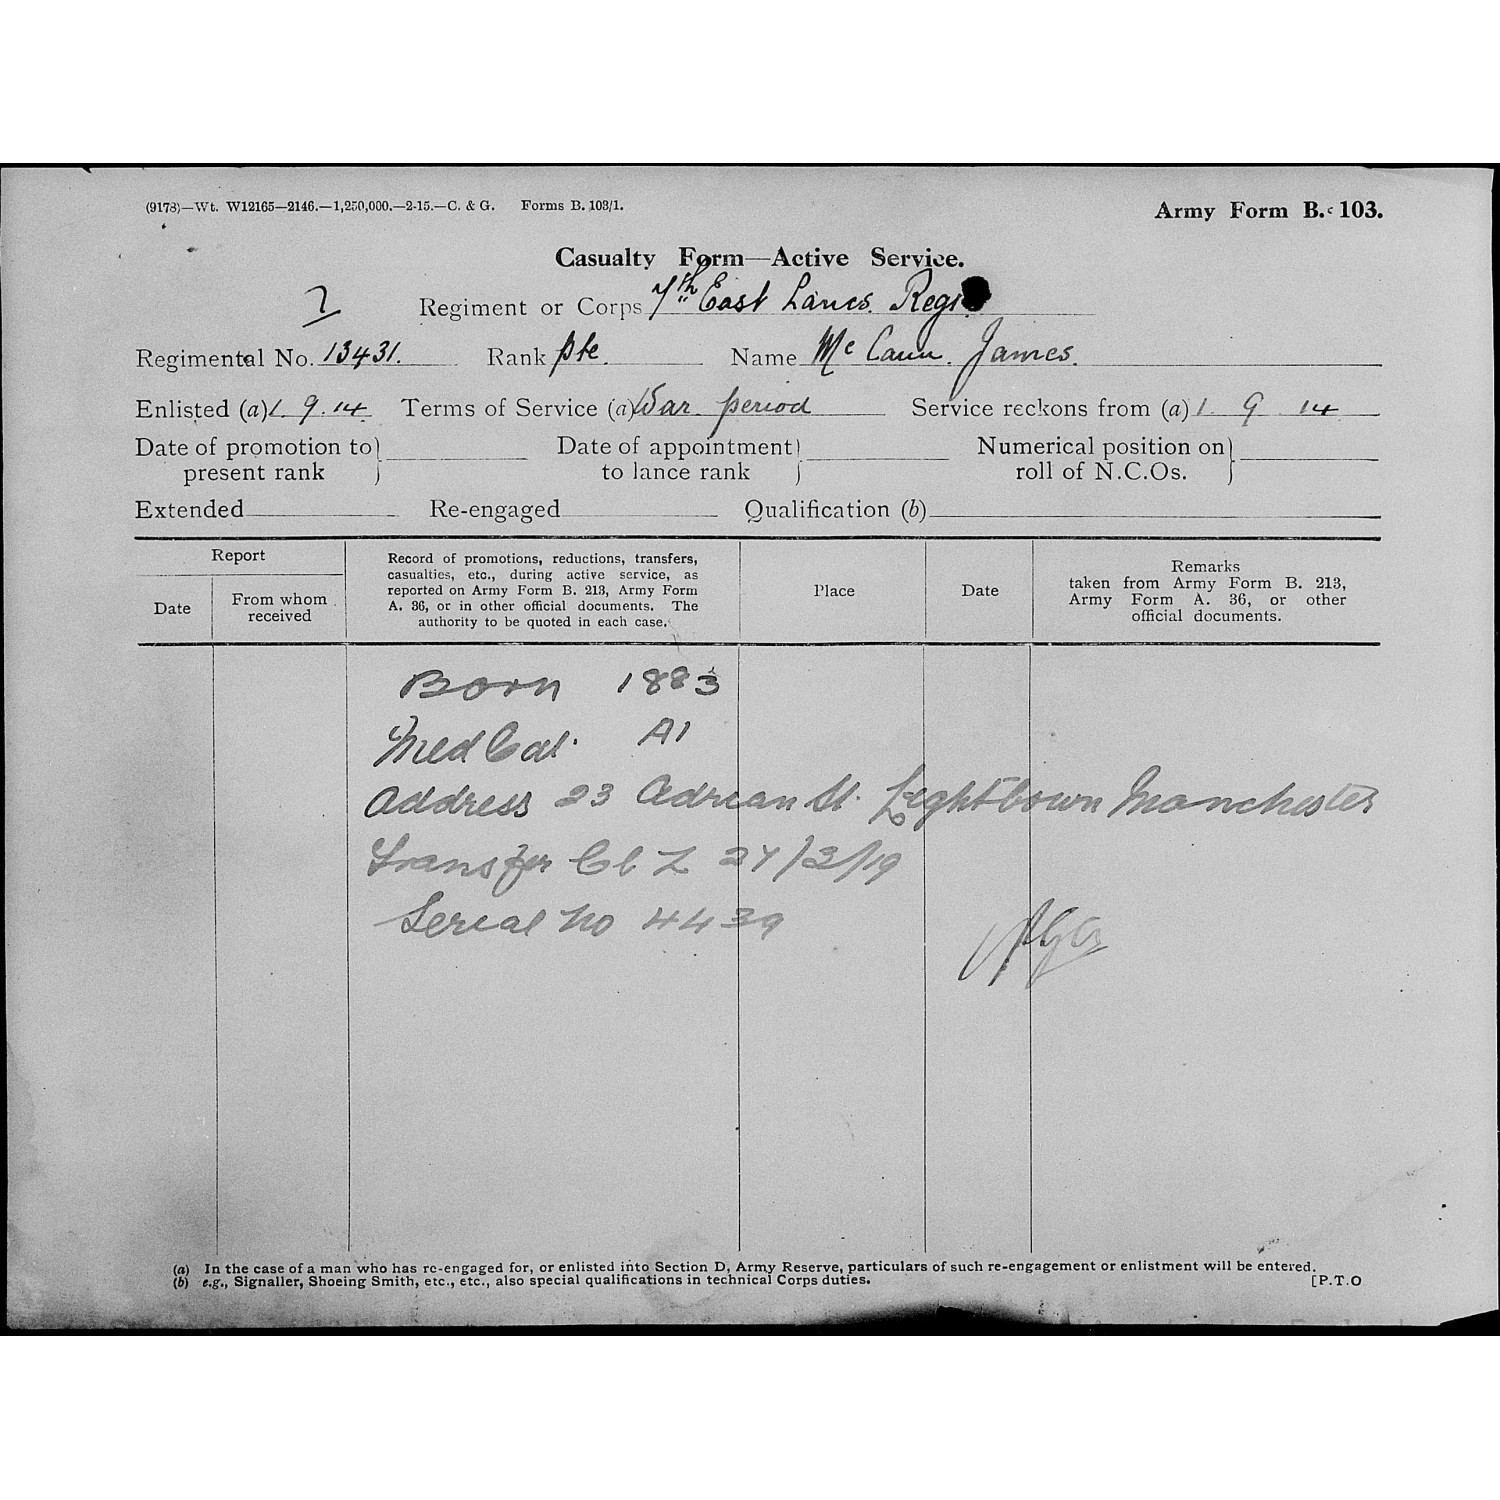 (9178)—Wt. W12165—2146.—1,250,000.—2-15.—C. & G. Forms B. 103/1.
Army Form B. 103.
Casualty Form—Active Service.
Regiment or Corps 7th East Lancs. Regt
Regimental No. 13431. Rank Pte. Name McCann. James.
Enlisted (a) 1. 9. 14 Terms of Service (a) War period Service reckons from (a) 1 9 14
Date of promotion to present rank Date of appointment to lance rank Numerical position on roll of N.C.Os.
Extended Re-engaged Qualification (b)
Report
Date
From whom received
Record of promotions, reductions, transfers,
casualties, etc., during active service, as
reported on Army Form B. 213, Army Form
A. 36, or in other official documents. The
authority to be quoted in each case.
Place
Date
Remarks
taken from Army Form B. 213,
Army Form A. 36, or other
official documents.
Born 1883
Med Cat. A1
Address 23 Adrian St. Lightbown Manchester
Transfer Cl Z 27/3/19
Serial No 4439
(a) In the case of a man who has re-engaged for, or enlisted into Section D, Army Reserve, particulars of such re-engagement or enlistment will be entered.
(b) e.g., Signaller, Shoeing Smith, etc., etc., also special qualifications in technical Corps duties. [P.T.O